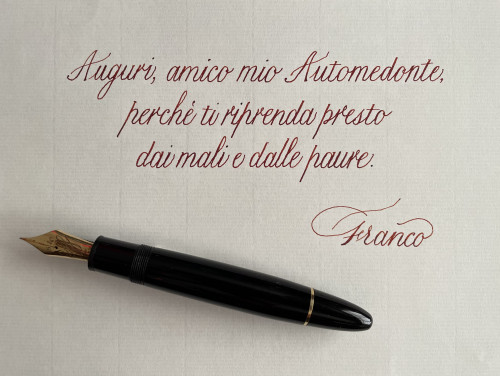 Auguri, amico mio Automedonte,
perché ti riprenda presto
dai mali e dalle paure.
Franco